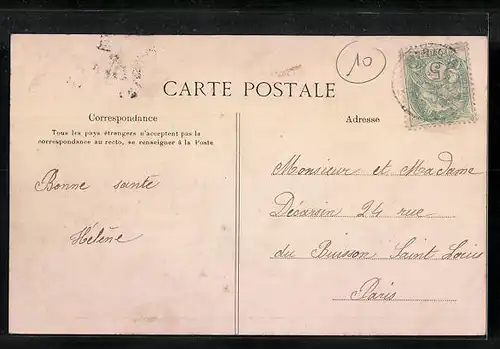 10
5
CARTE POSTALE
Correspondance
Tous les pays étrangers n'acceptent pas la
correspondance au recto, se renseigner à la Poste
Adresse
Bonne santé
Hélène
Monsieur et Madame
24 rue
du Buisson Saint Louis
Paris